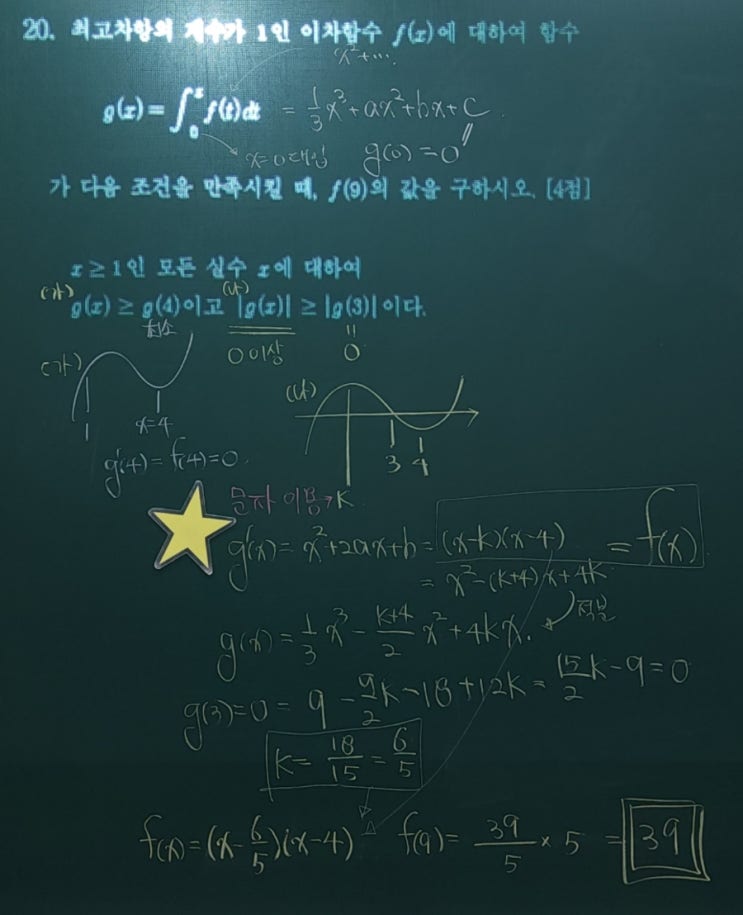 20. 최고차항의 계수가 1인 이차함수 f(x)에 대하여 함수
x²+⋯.
g(x)=∫₀ˣ f(t)dt = 1/3x³+ax²+bx+C
x=0 대입 g(0)=0
가 다음 조건을 만족시킬 때, f(9)의 값을 구하시오. [4점]
x≥1인 모든 실수 x에 대하여
(가) g(x)≥g(4)이고 (나) |g(x)|≥|g(3)|이다.
최소 0이상 0
(가) (나)
1 x=4 3 4
g'(4)=f(4)=0.
문자 이용→K
g'(x)=x²+2ax+b=(x-k)(x-4) =f(x)
=x²-(k+4)x+4k
g(x)=1/3x³-(k+4)/2x²+4kx. 적분
g(3)=0=9-9/2k-18+12k=15/2k-9=0
k=18/15=6/5
f(x)=(x-6/5)(x-4) f(9)=39/5×5=39